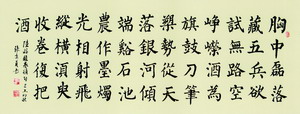 胸中磊落
藏五兵欲
試無路空
崢嶸酒為
旗鼓筆刀
槊勢從天
落銀河傾
端溪石池
濃作墨燭
光相射飛
縱橫須臾
收卷復把
酒